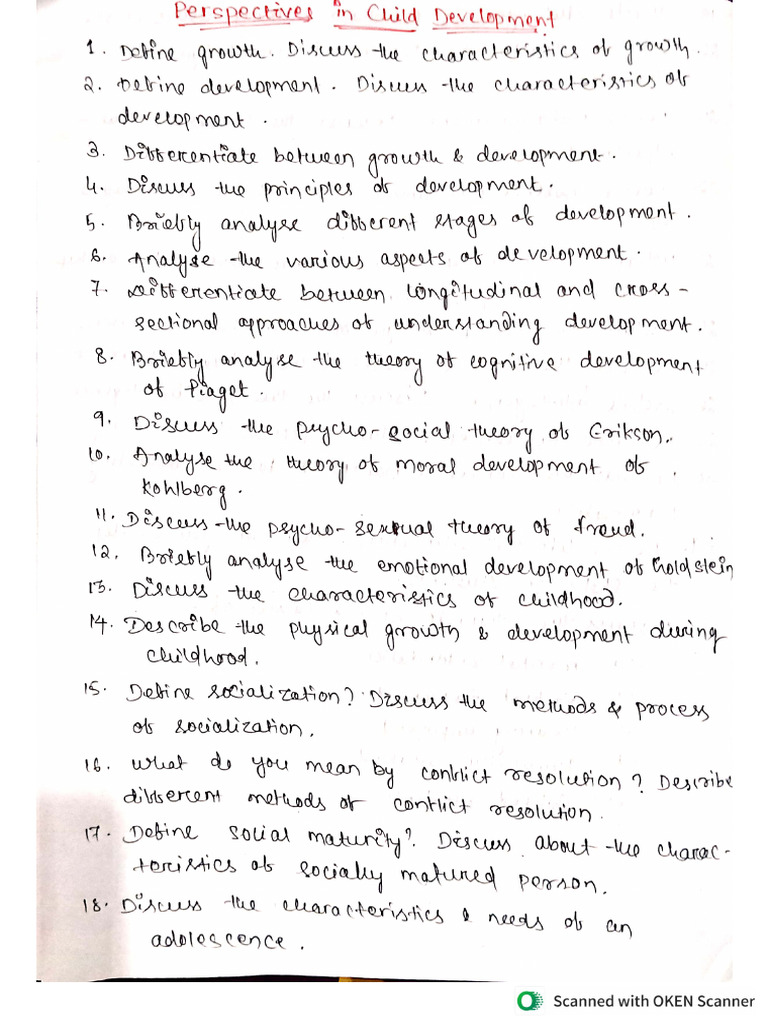 Perspectives in Child Development
1. Define growth. Discuss the characteristics of growth.
2. Define development. Discuss the characteristics of
development.
3. Differentiate between growth & development.
4. Discuss the principles of development.
5. Briefly analyse different stages of development.
6. Analyse the various aspects of development.
7. Differentiate between longitudinal and cross-
sectional approaches of understanding development.
8. Briefly analyse the theory of cognitive development
of Piaget.
9. Discuss the psycho-social theory of Erikson.
10. Analyse the theory of moral development of
Kohlberg.
11. Discuss the psycho-sexual theory of freud.
12. Briefly analyse the emotional development of Goldstein
13. Discuss the characteristics of childhood.
14. Describe the physical growth & development during
childhood.
15. Define socialization? Discuss the methods & process
of socialization.
16. What do you mean by conflict resolution? Describe
different methods of conflict resolution.
17. Define social maturity? Discuss about the charac-
teristics of socially matured person.
18. Discuss the characteristics & needs of an
adolescence.
Scanned with OKEN Scanner